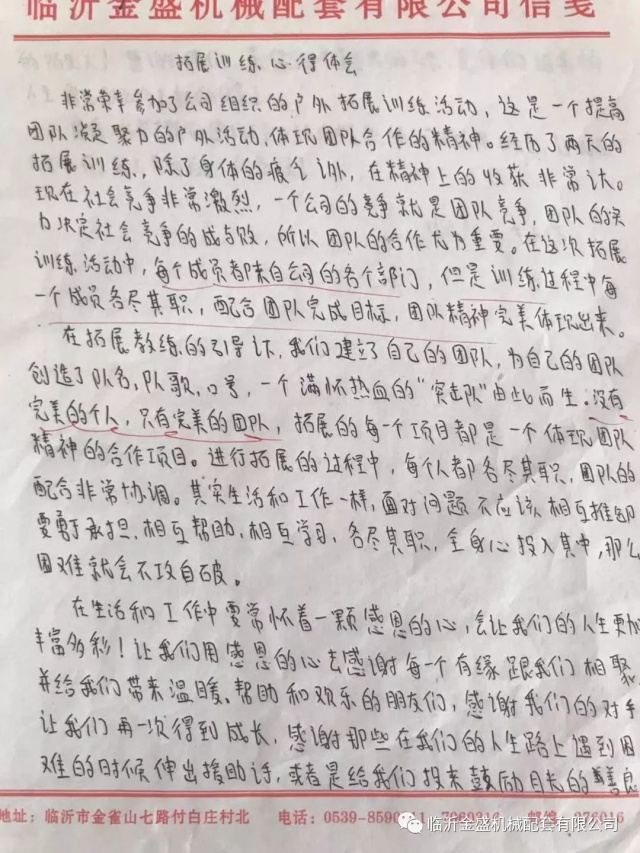 临沂金盛机械配套有限公司信笺
拓展训练心得体会
非常荣幸参加了公司组织的户外拓展训练活动，这是一个提高
团队凝聚力的户外活动，体现团队合作的精神。经历了两天的
拓展训练，除了身体的疲乏以外，在精神上的收获非常大。
现在社会竞争非常激烈，一个公司的竞争就是团队竞争，团队的实
力决定社会竞争的成与败，所以团队的合作尤为重要。在这次拓展
训练活动中，每个成员都来自公司的各个部门，但是训练过程中每
一个成员各尽其职，配合团队完成目标，团队精神完美体现出来。
在拓展教练的引导下，我们建立了自己的团队，为自己的团队
创造了队名，队歌，口号，一个满怀热血的“突击队”由此而生。没有
完美的个人，只有完美的团队，拓展的每一个项目都是一个体现团队
精神的合作项目。进行拓展的过程中，每个人都各尽其职，团队的
配合非常协调。其实生活和工作一样，面对问题不应该相互推卸
要勇于承担，相互帮助，相互学习，各尽其职，全身心投入其中，那么
困难就会不攻自破。
在生活和工作中要常怀着一颗感恩的心，会让我们的人生更加
丰富多彩！让我们用感恩的心去感谢每一个有缘跟我们相聚
并给我们带来温暖、帮助和欢乐的朋友们，感谢我们的对手
让我们再一次得到成长，感谢那些在我们的人生路上遇到困
难的时候伸出援助手，或者是给我们投来鼓励目光的善良
地址：临沂市金雀山七路付白庄村北 电话：0539-8590 邮编：276016
临沂金盛机械配套有限公司